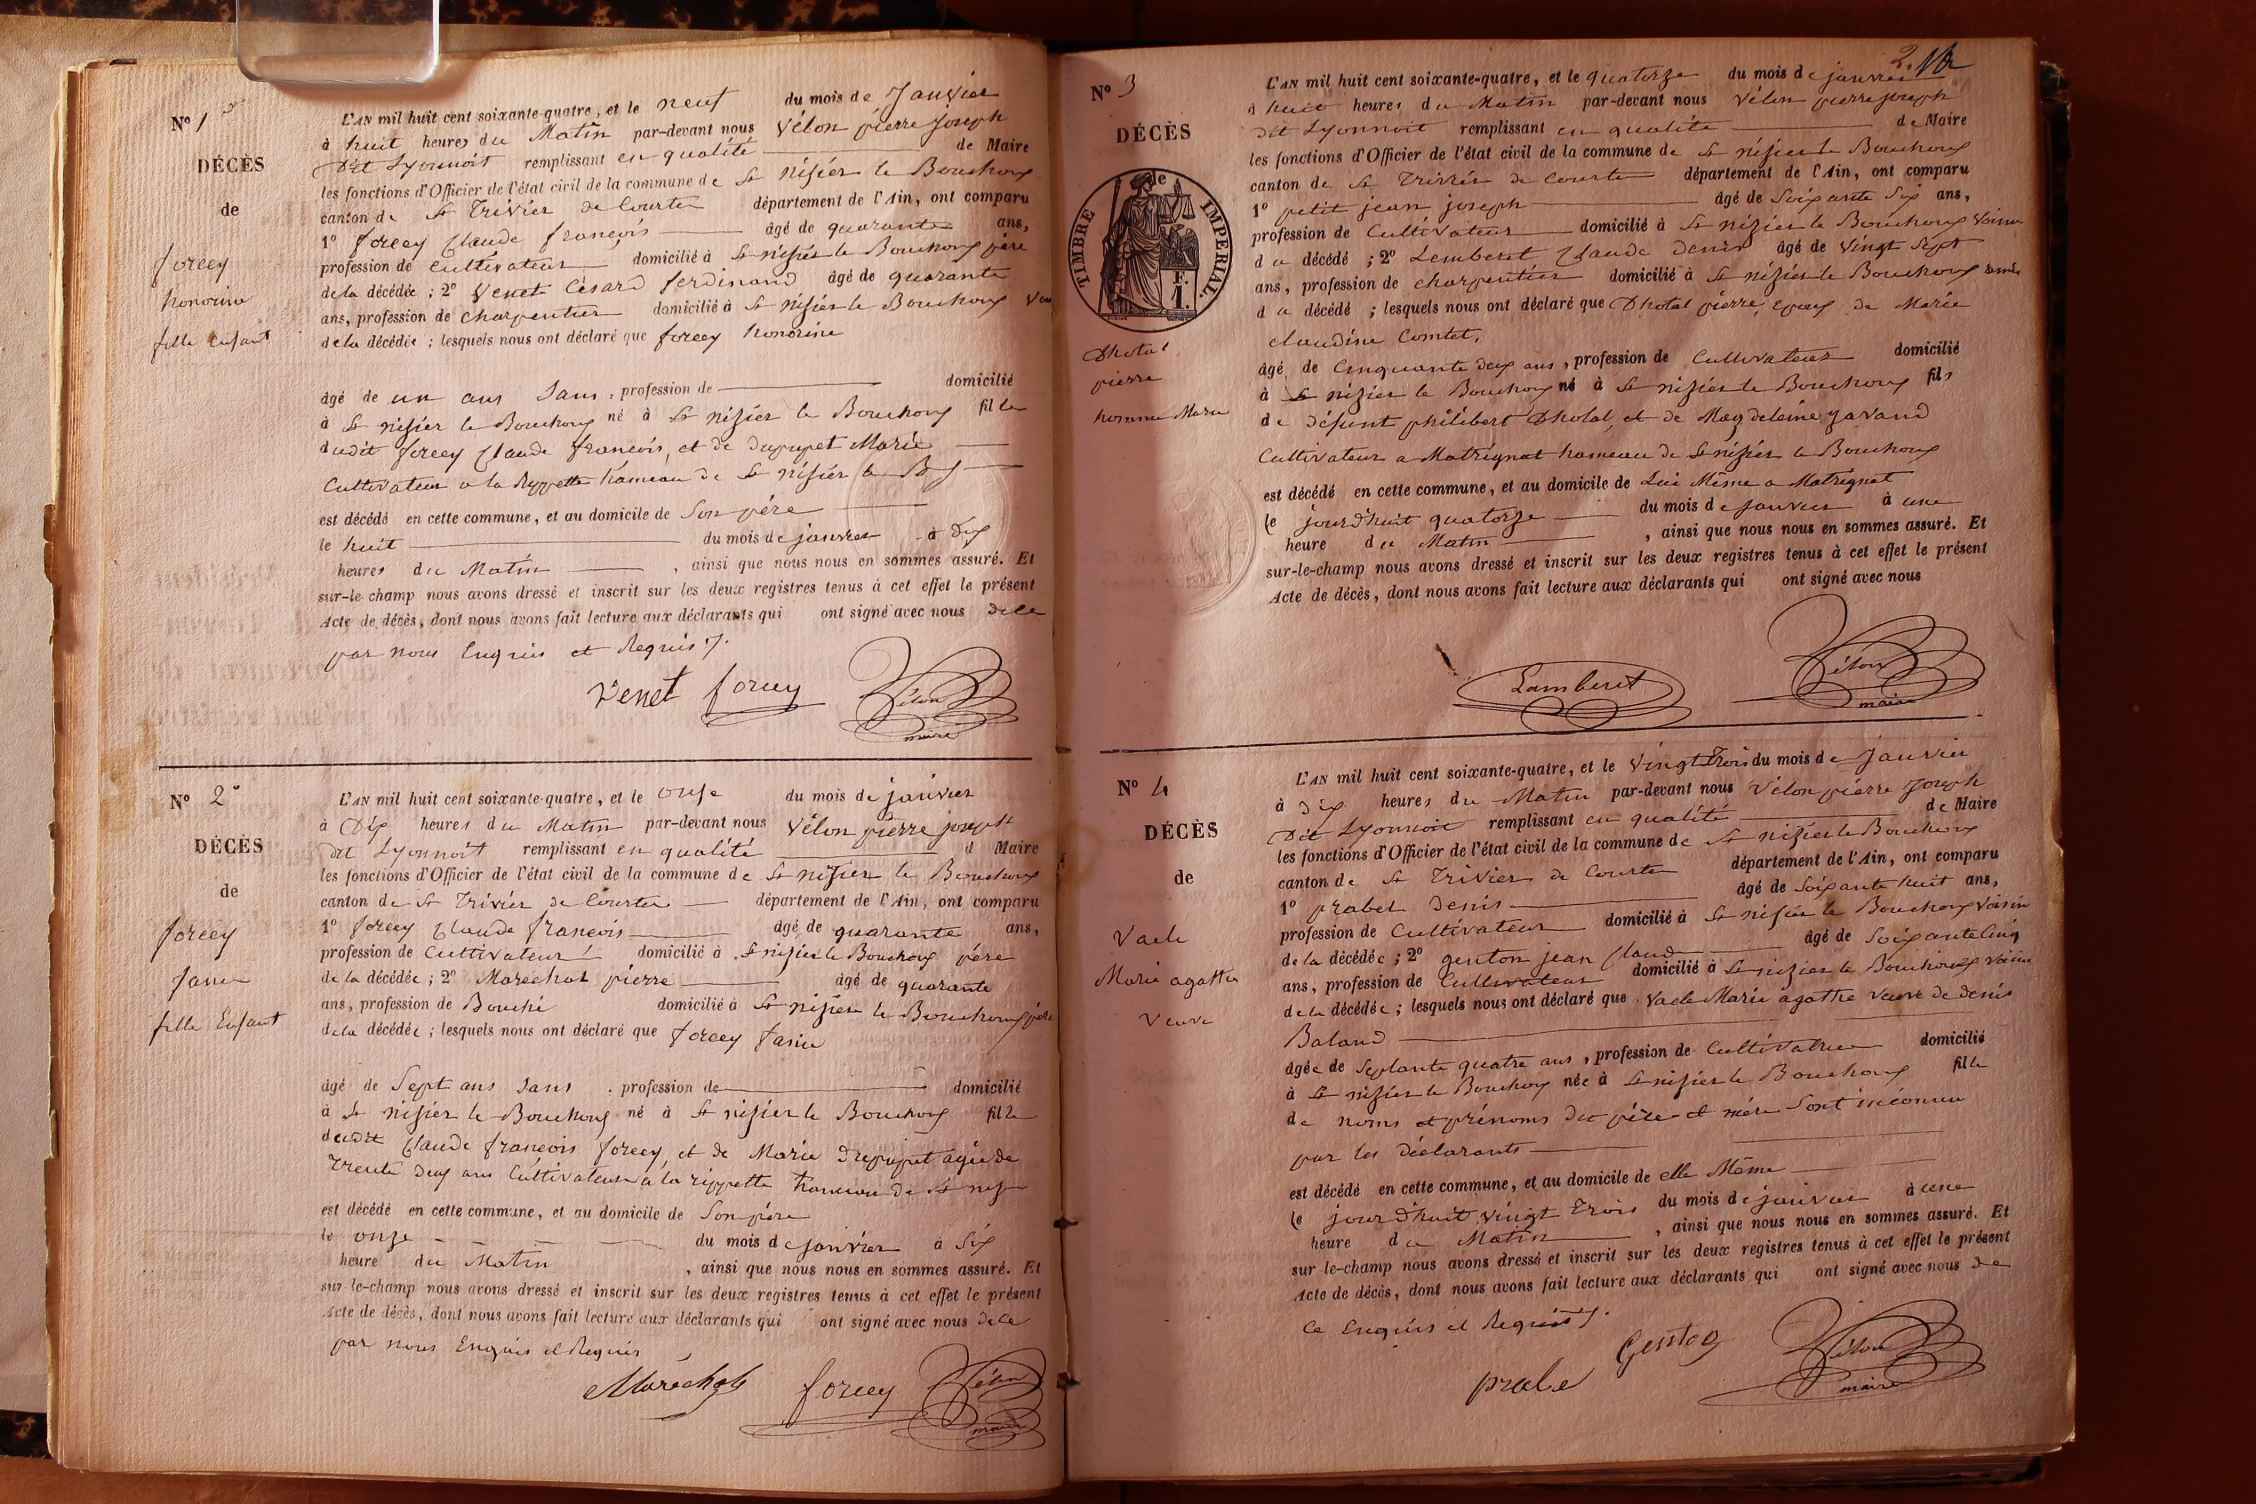 Nº 1
DÉCÈS
de
forcey
honorine
fille enfant
L'AN mil huit cent soixante-quatre, et le neuf du mois de Janvier
à huit heures du Matin par-devant nous Vélon pierre Joseph
Dit Lyonnoit remplissant en qualité de Maire
les fonctions d'Officier de l'état civil de la commune de St nisier le Bouchoux
canton de St Trivier de Courtes département de l'Ain, ont comparu
1º forcey Claude françois âgé de quarante ans,
profession de cultivateur domicilié à St nisier le Bouchoux père
de la décédée ; 2º Venet César ferdinand âgé de quarante
ans, profession de charpentier domicilié à St nisier le Bouchoux
de la décédée ; lesquels nous ont déclaré que forcey honorine
âgé de un ans Sans profession de domicilié
à St nisier le Bouchoux né à St nisier le Bouchoux fille
dudit forcey Claude françois, et de Marie
Cultivateur a la hameau de St nisier le
est décédé en cette commune, et au domicile de Son père
le huit du mois de janvier à Dix
heures du Matin , ainsi que nous nous en sommes assuré. Et
sur-le-champ nous avons dressé et inscrit sur les deux registres tenus à cet effet le présent
Acte de décès, dont nous avons fait lecture aux déclarants qui ont signé avec nous de ce
par nous Enquis et Requis
Venet forcey Vélon
maire
Nº 2º
DÉCÈS
de
forcey
fille Enfant
L'AN mil huit cent soixante-quatre, et le onze du mois de janvier
à Dix heures du Matin par-devant nous Vélon pierre joseph
dit Lyonnoit remplissant en qualité d Maire
les fonctions d'Officier de l'état civil de la commune de St nisier le Bouchoux
canton de St Trivier de Courtes département de l'Ain, ont comparu
1º forcey Claude françois âgé de quarante ans,
profession de Cultivateur domicilié à St nisier le Bouchoux père
de la décédée ; 2º Marechal pierre âgé de quarante
ans, profession de Bouché domicilié à St nisier le Bouchoux
de la décédée ; lesquels nous ont déclaré que forcey
âgé de Sept ans Sans profession de domicilié
à St nisier le Bouchoux né à St nisier le Bouchoux fille
dudit Claude françois forcey, et de Marie agée de
Trente deux ans Cultivateur a la rippette hameau de St
est décédé en cette commune, et au domicile de Son père
le onze du mois de janvier à Six
heure du Matin , ainsi que nous nous en sommes assuré. Et
sur-le-champ nous avons dressé et inscrit sur les deux registres tenus à cet effet le présent
Acte de décès, dont nous avons fait lecture aux déclarants qui ont signé avec nous de ce
par nous Enquis et Requis
Maréchal forcey Vélon
maire
2.
Nº 3
DÉCÈS
de
TIMBRE IMPERIAL.
F.
1.
Dhotal
pierre
homme Marie
L'AN mil huit cent soixante-quatre, et le quatorze du mois de janvier
à huit heures du Matin par-devant nous Vélon pierre joseph
dit Lyonnoit remplissant en qualité de Maire
les fonctions d'Officier de l'état civil de la commune de St nisier le Bouchoux
canton de St Trivier de Courtes département de l'Ain, ont comparu
1º petit jean joseph âgé de Soixante Six ans,
profession de Cultivateur domicilié à St nisier le Bouchoux Voisin
du décédé ; 2º Lemberet Claude Denis âgé de Vingt Sept
ans, profession de charpentier domicilié à St nisier le Bouchoux
du décédé ; lesquels nous ont déclaré que Dhotal pierre, Epoux de Marie
claudine Comtet,
âgé de Cinquante deux ans, profession de Cultivateur domicilié
à St nisier le Bouchoux né à St nisier le Bouchoux fils
de défunt philibert Dhotal, et de Magdeleine
Cultivateur a Matrignat hameau de St nisier le Bouchoux
est décédé en cette commune, et au domicile de Lui Même a Matrignat
le jourd'huit quatorze du mois de Janvier à une
heure du Matin , ainsi que nous nous en sommes assuré. Et
sur-le-champ nous avons dressé et inscrit sur les deux registres tenus à cet effet le présent
Acte de décès, dont nous avons fait lecture aux déclarants qui ont signé avec nous
Lamberet Vélon
maire
Nº 4
DÉCÈS
de
Vaele
Marie agathe
Veuve
L'AN mil huit cent soixante-quatre, et le Vingt Trois du mois de janvier
à Dix heures du Matin par-devant nous Vélon pierre Joseph
Dit Lyonnoit remplissant en qualité de Maire
les fonctions d'Officier de l'état civil de la commune de St nisier le Bouchoux
canton de St Trivier de Courtes département de l'Ain, ont comparu
1º prabel Denis âgé de Soixante huit ans,
profession de Cultivateur domicilié à St nisier le Bouchoux Voisin
de la décédée ; 2º genton jean Claude âgé de Soixante Cinq
ans, profession de Cultivateur domicilié à St nisier le Bouchoux Voisin
de la décédée ; lesquels nous ont déclaré que Vaele Marie agathe Veuve de denis
Baland
âgée de Septante quatre ans, profession de Cultivatrice domicilié
à St nisier le Bouchoux née à St nisier le Bouchoux fille
de noms et prénoms du père et mère Sont inconnu
par les Déclarants
est décédé en cette commune, et au domicile de elle Même
le jourd'huit Vingt Trois du mois de janvier à une
heure du Matin , ainsi que nous nous en sommes assuré. Et
sur le-champ nous avons dressé et inscrit sur les deux registres tenus à cet effet le présent
Acte de décès, dont nous avons fait lecture aux déclarants qui ont signé avec nous de
ce Enquis et Requis
prabel Genton Vélon
maire